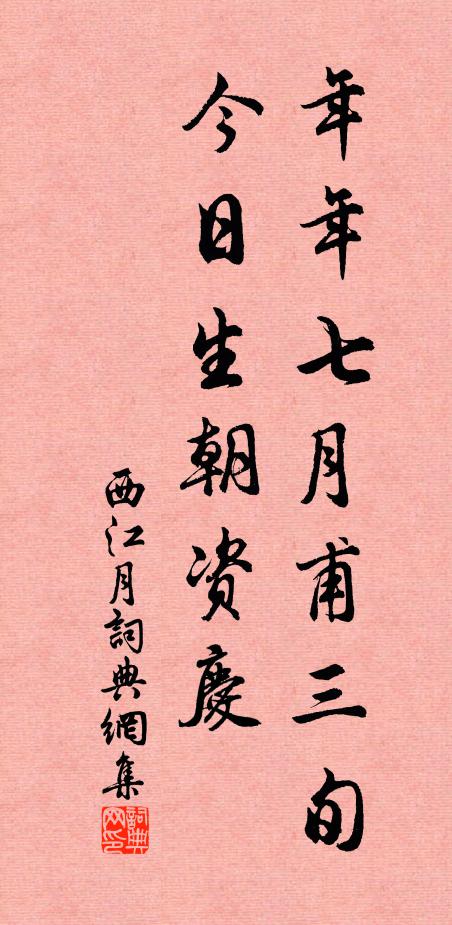 年年七月甫三旬
今日生朝资慶
西江月詞典網集
詞典网印